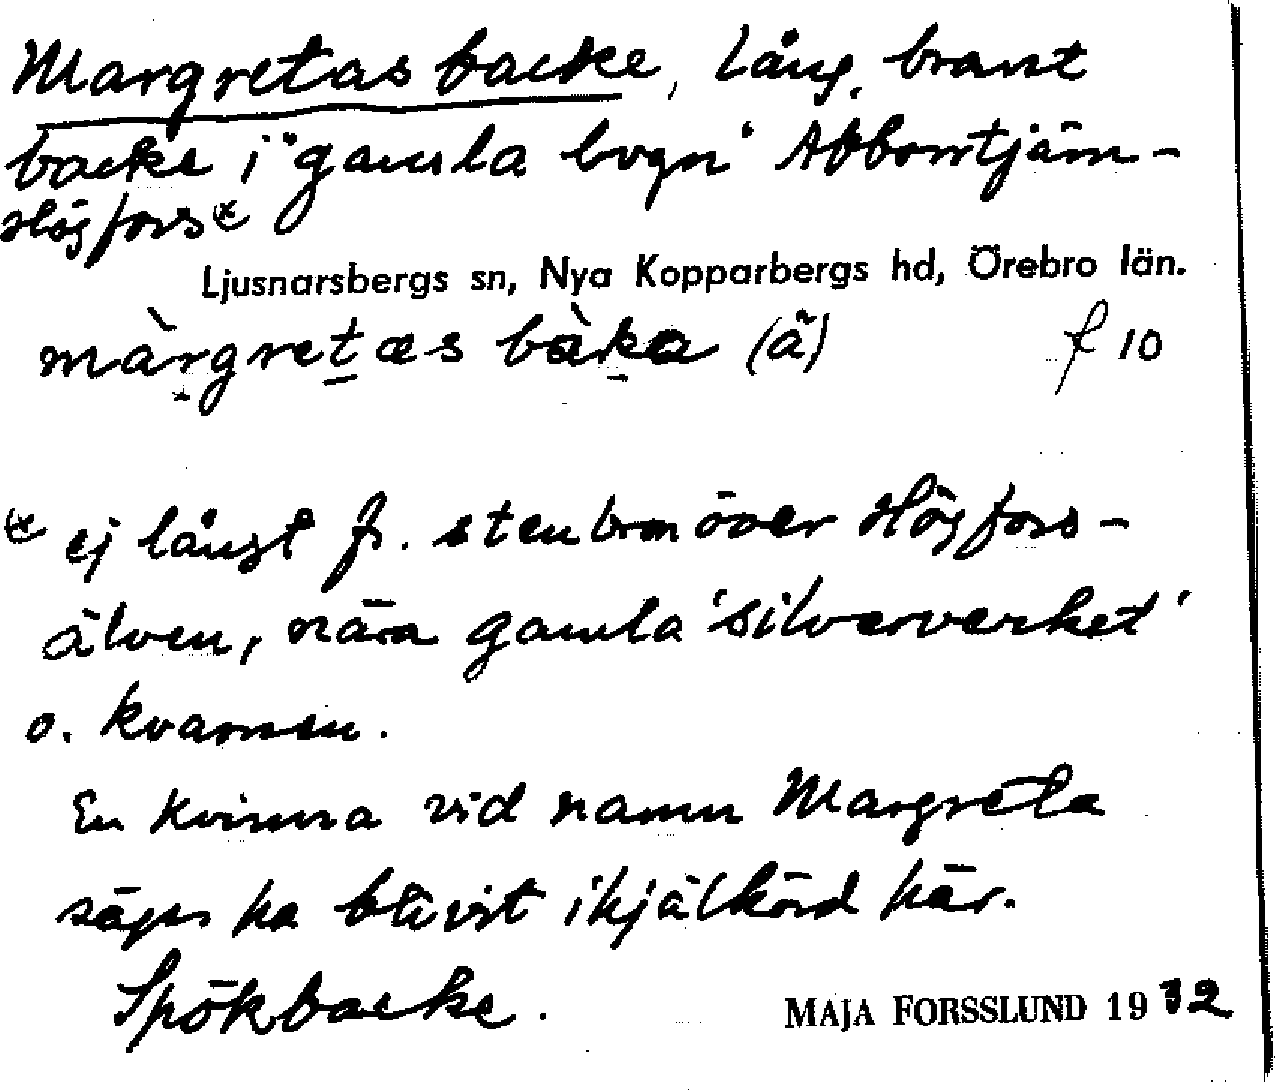 Margretas backe, lång, brant
backe i "gamla lvgn" Abborrtjärn-
Högfors*
Ljusnarsbergs sn, Nya Kopparbergs hd, Örebro län.
màrgretas bàka (ä) f 10
* ej långt fr. stenbron över Högfors-
älven, nära gamla 'silververket'
o. kvarnen.
En kvinna vid namn Margreta
säges ha blivit ihjälkörd här.
Spökbacke.
MAJA FORSSLUND 1932